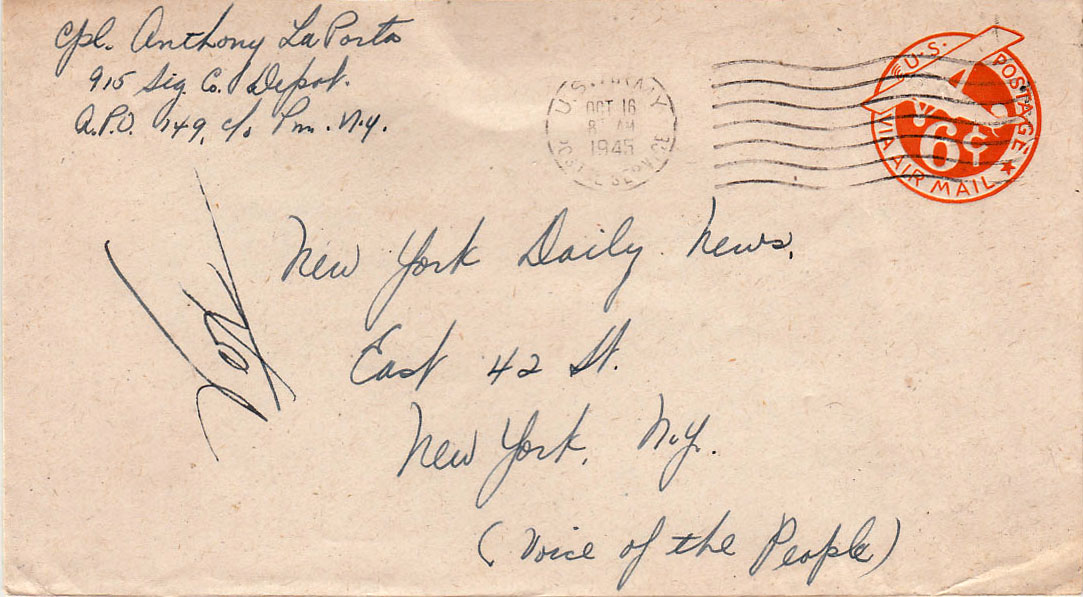 Cpl. Anthony LaPorta
915 Sig. Co. Depot.
A.P.O. 149, c/o Pm. N.Y.
U.S. ARMY
OCT 16
8 AM
1945
POSTAL SERVICE
U.S. POSTAGE
6¢
VIA AIR MAIL
Vox
New York Daily News,
East 42 St.
New York, N.Y.
(Voice of the People)